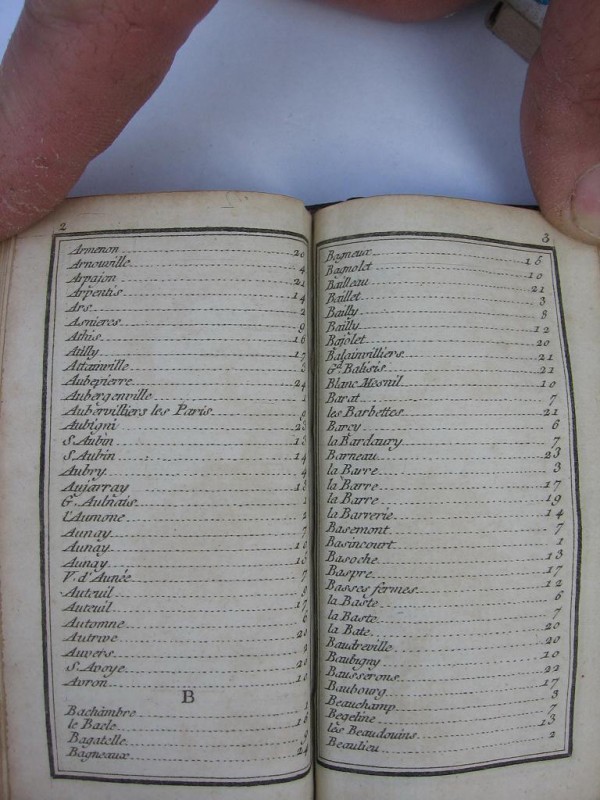 2
Armenon 20
Arnouville 4
Arpajon 21
Arpentis 14
Ars 2
Asnieres 9
Athis 16
Atilly 17
Attainville 3
Aubepierre 24
Aubergenville 1
Aubervilliers les Paris 9
Aubigni 23
S. Aubin 13
S. Aubin 14
Aubry 4
Aujarray 18
G. Aulnais
l'Aumone 2
Aunay 7
Aunay 10
Aunay
V. d'Aunée 7
Auteuil 9
Auteuil 17
Automne 6
Autruve 20
Auvers 2
S. Avoye 20
Avron 10
B
Bachâmbre 1
le Bacle 16
Bagatelle 9
Bagneaux 24
3
Bagneux 16
Bagnolet 10
Bailleau 21
Baillet 3
Bailly 8
Bailly 12
Bajolet 20
Balainvilliers 21
Gd. Balisis 21
Blanc Mesnil 10
Barat 7
les Barbettes 21
Barcy 6
la Bardaury 7
Barneau 23
la Barre 3
la Barre 17
la Barre 19
la Barrerie 14
Basemont 7
Basincourt 1
Basoche 13
Baspre 17
Basses fermes 12
la Baste 6
la Baste 7
la Bate 20
Baudreville 20
Baubigny 10
Bausserons 22
Baubourg 17
Beauchamp 3
Begeline 7
les Beaudouins 13
Beaulieu 2